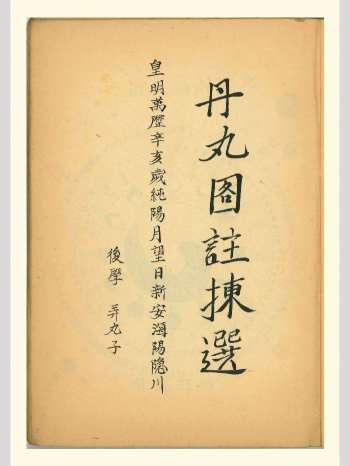 丹丸图註揀選
皇明萬歷辛亥歲純陽月望日新安海陽隐川
後學 弄丸子